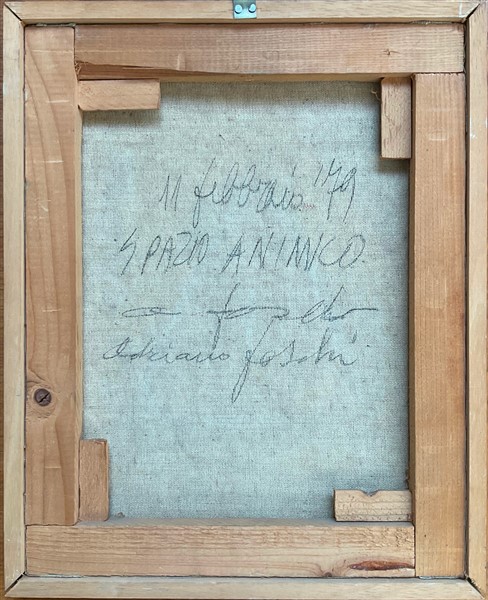 11 febbraio '79
SPAZIO ANIMICO
Adriano Foschi